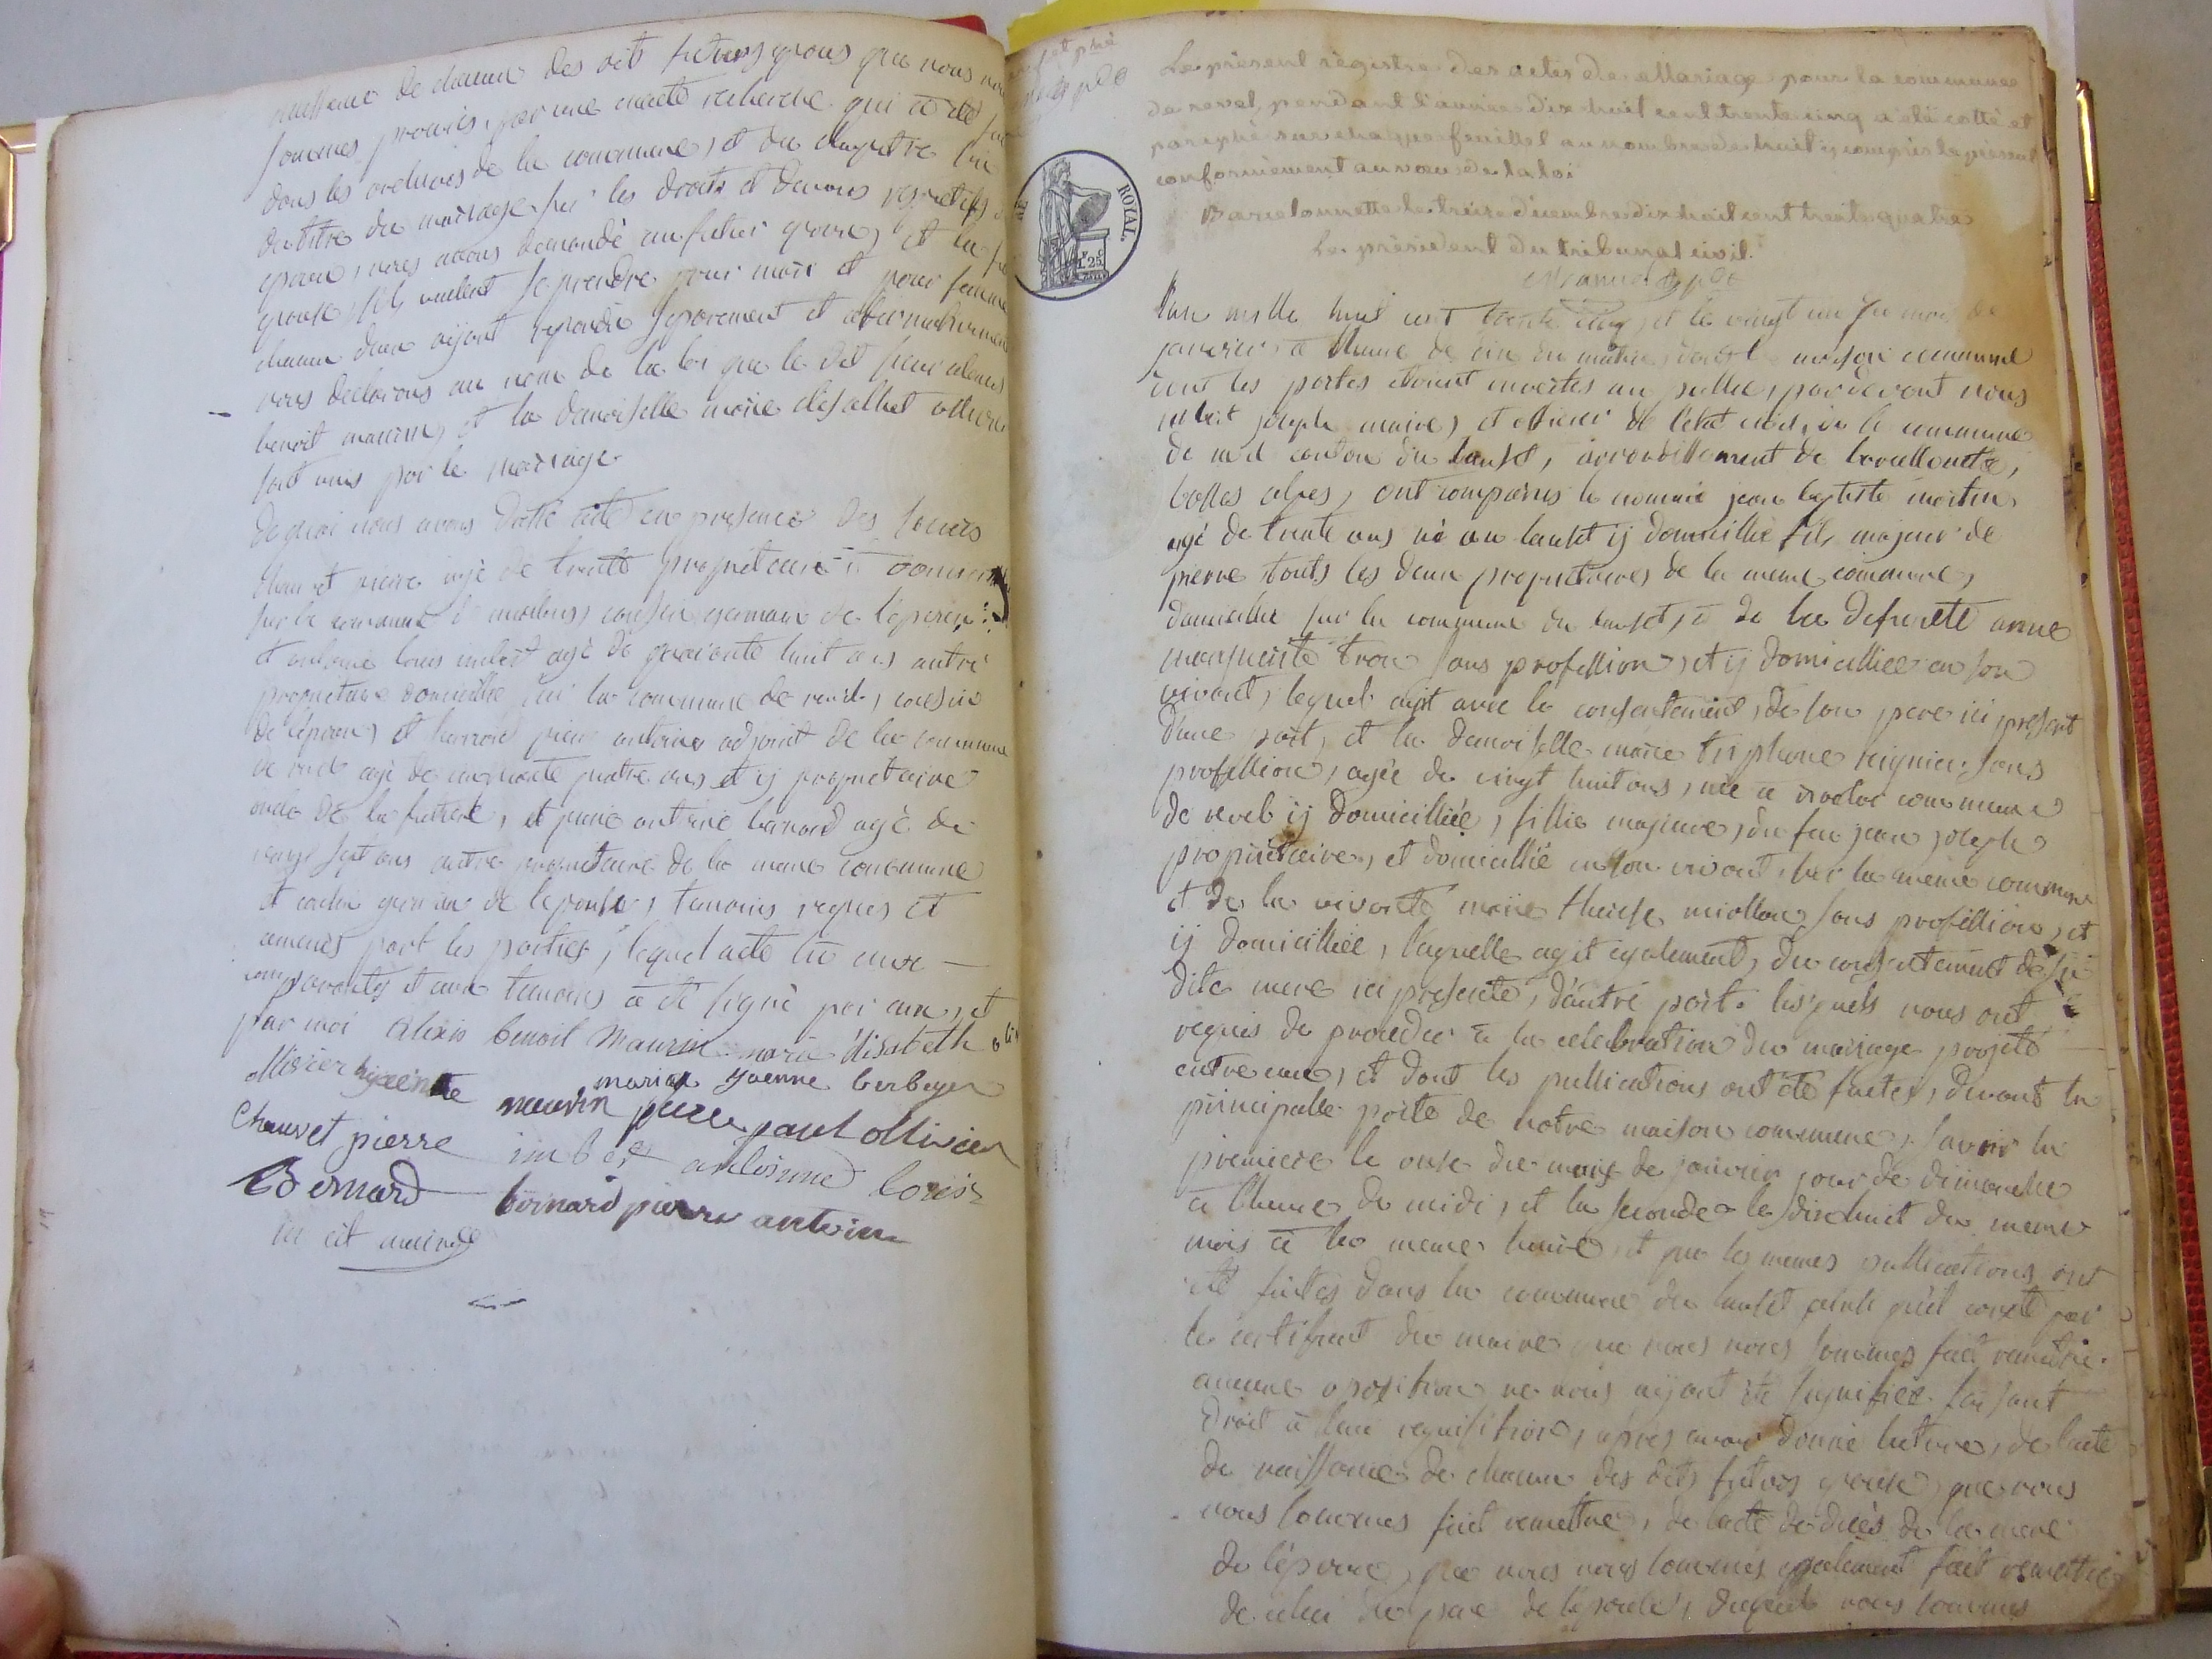 naissance de chacun des dit futurs epous que nous nous
sommes procurés, par une exacte recherche qui a été fait
dans les archives de la commune, et du chapitre six
du titre du mariage sur les droits et devoirs respectifs des
epoux, nous avons demandé au futur epoux, et la future
epouse, s'ils veulent se prendre pour mari et pour femme
chacun deux aijant repondu separement et afirmativement
nous declarons au nom de la loi que le dit sieur alexis
benoit maurin, et la demoiselle marie elisabhet ollivier
sont unis par le mariage.
de quoi nous avons dressé acte en presence des sieurs
chauvet pierre agé de trente proprietaire domicilié
sur la commune de meolans, cousin germain de l'epoux
et antoine louis imbert agé de quarante huit ans autre
proprietaire domicillié sur la commune de revel, cousin
de l'epoux, et bernard pierre antoine adjoint de la commune
de revel agé de cinquante quatre ans et ij proprietaire
oncle de la future, et pierre antoine bernard agé de
vingt sept ans autre proprietaire de la meme commune
et cousin germain de l'epouse, temoins requis et
amenés par les parties, lequel acte lu aux
comparants et aux temoins a été signé par eux, et
par moi alexis benoit Maurin marie elisabeth
ollivier hyacinthe marie yvenne berbeyer
maurin pierre paul ollivier
Chauvet pierre imbert antoinne louis
Bernard bernard pierre antoine
imbert maire
Le présent régistre des actes de Mariage pour la commune
de revel, pendant l'année dix huit cent trente cinq a été cotté et
paraphé sur chaque feuillet au nombre de huit y compris le présent
conformément au vœu de la loi
Barcelonnette le treize décembre dix huit cent trente quatre
Le président du tribunal civil.
ROYAL.
L'an mille huit cent trente cinq, et le vingt un du mois de
janvier, a l'heure de dix du matin, dans la maison commune
dont les portes étoient ouvertes au public, pardevant nous
imbert joseph maire, et officier de l'état civil, de la commune
de revel canton du lauset, arrondissement de barcellonette,
basses alpes, ont comparus le nommé jean baptiste martin,
agé de trente ans né au lauset ij domicillié fils majeur de
pierre touts les deux proprietaires de la meme commune,
domicillié sur la commune du lauset, et de la defuncte anne
marguerite tron sans profession, et ij domicilliée en son
vivant, lequel agit avec le consentement, de son pere ici present
d'une part, et la demoiselle marie triphone reignier sans
profession, agée de vingt huit ans, née a rioclar commune
de revel ij domicilliée, fillie majeure, de feu jean joseph
proprietaire, et domicillié en son vivant sur la meme commune
et de la vivante marie therese miollan sans profession, et
ij domicilliée, laquelle agit egalement, du consentement de sa
dite mere ici presente, d'autre part. lesquels nous ont
requis de proceder a la celebration du mariage projeté
entre eux, et dont les publications ont été faites, devant la
principalle porte de notre maison commune, savoir la
premiere le onze du mois de janvier jour de dimanche
a l'heure de midi, et la seconde le dixhuit du meme
mois a la meme heure, et que les memes publications ont
été faites dans la commune du lauset celat qu'il conste par
le certificat du maire que nous nous sommes fait remettre.
aucune oposition ne nous aijant été signifiée. faisant
droit a leur requisition, apres avoir donné lecture, de l'acte
de naissance de chacun des dits futurs epoux, que nous
nous sommes fait remettre, de l'acte de decès de la mere
de l'epoux, que nous nous sommes egalement fait remettre
de celui du pere de l'epouse, duquel nous sommes